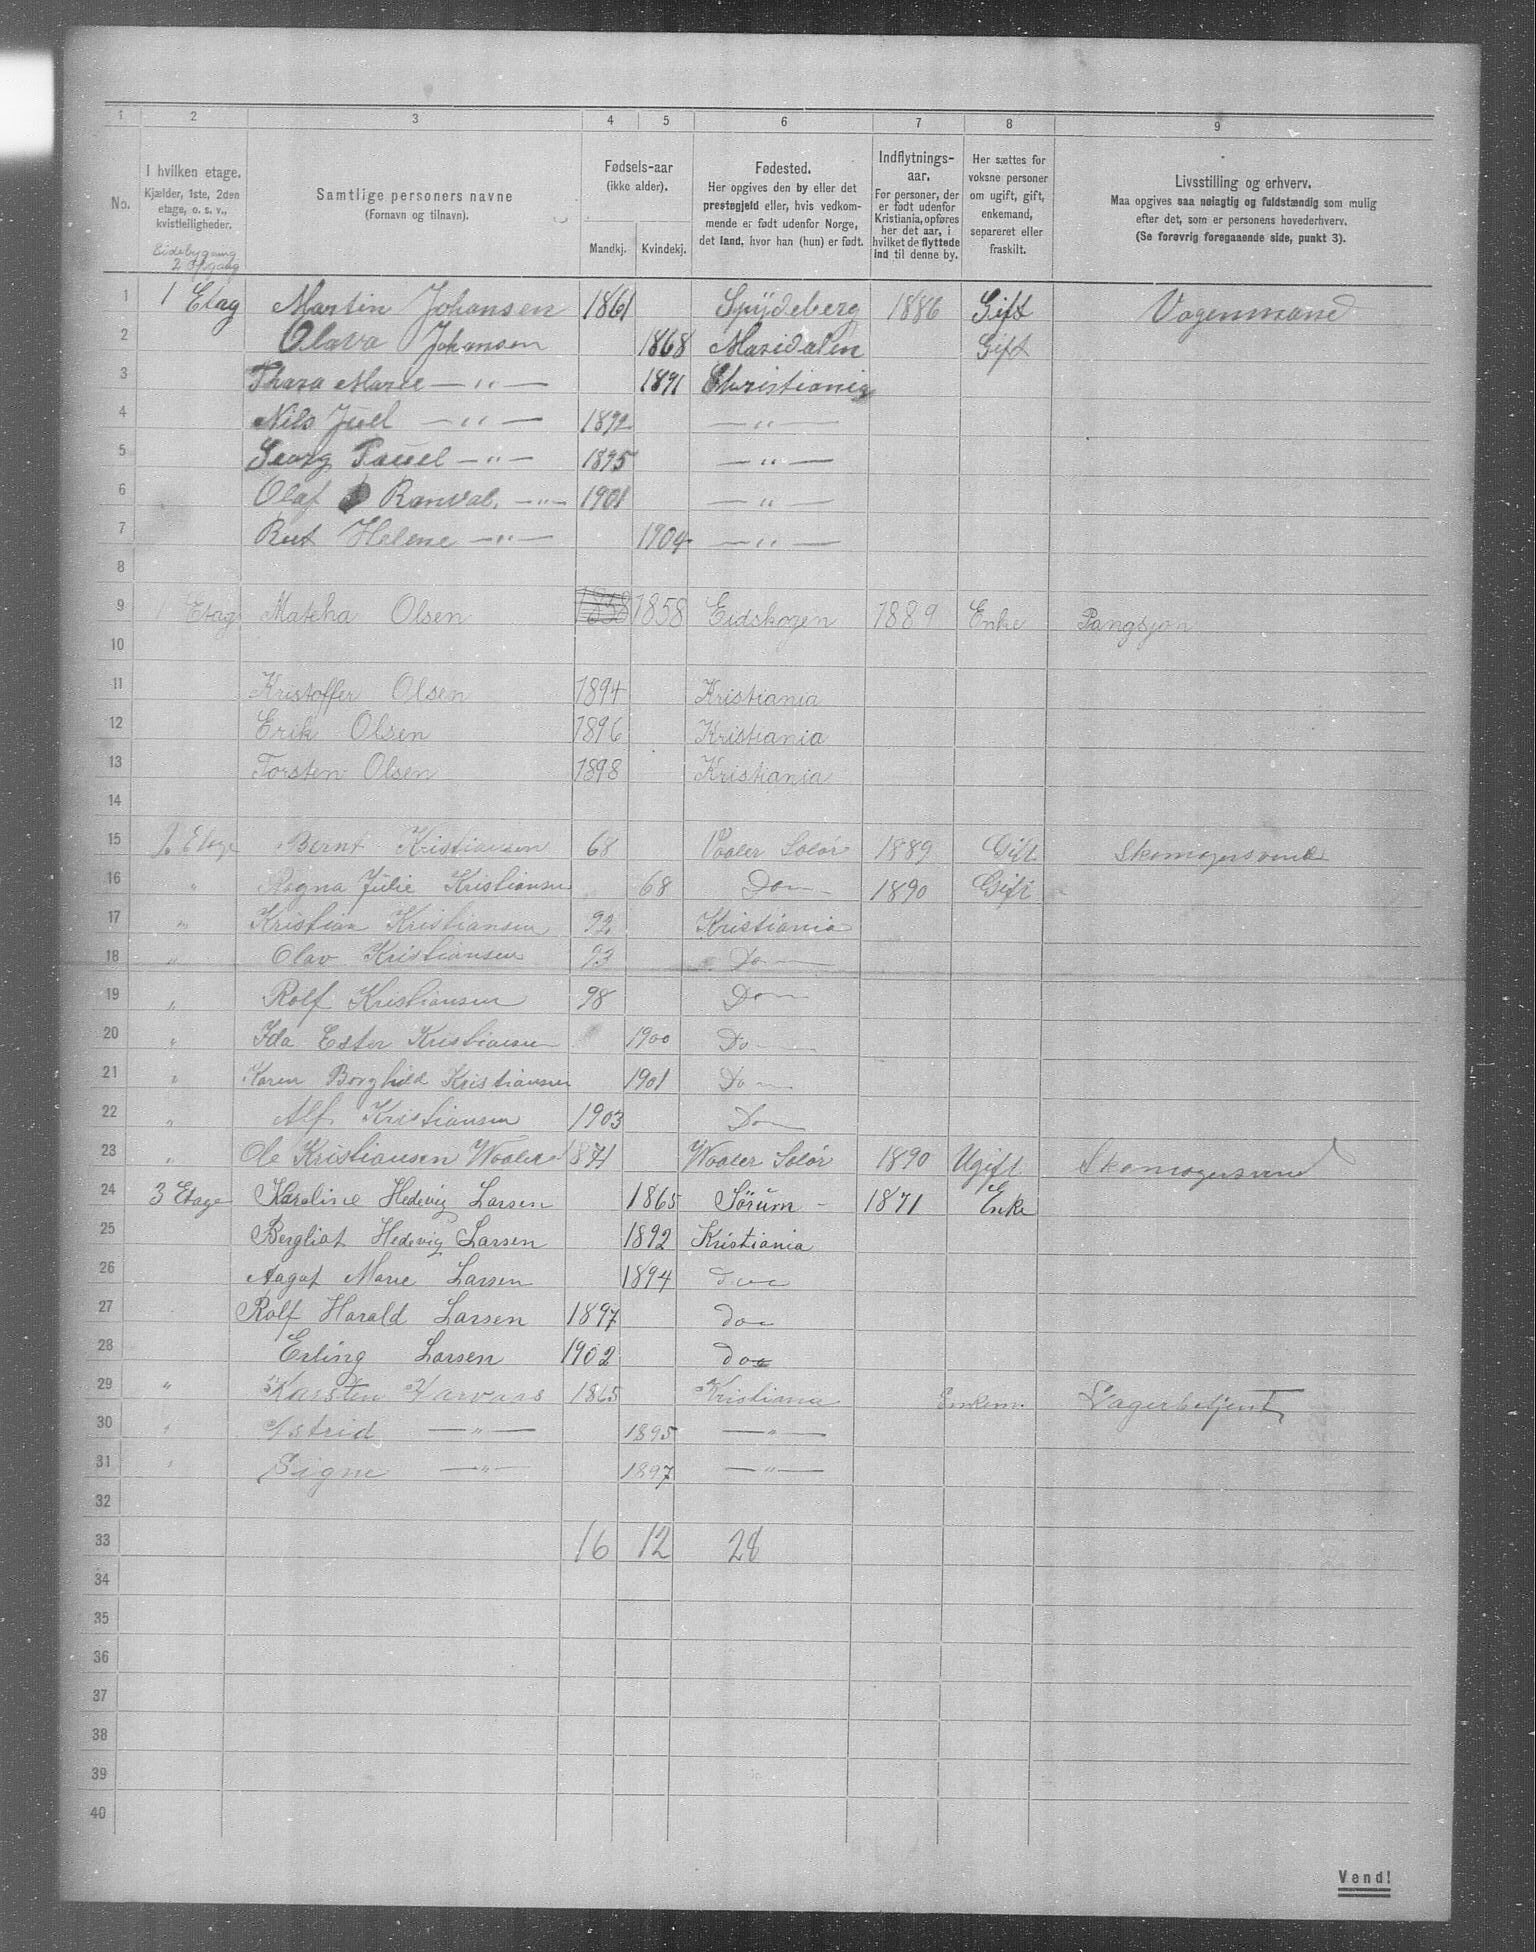 1 2 3 4 5 6 7 8 9
No.
I hvilken etage.
Kjælder, 1ste, 2den
etage, o. s. v.,
kvistleiligheder.
Sidebygning
2 Opgang
Samtlige personers navne
(Fornavn og tilnavn).
Fødsels-aar
(ikke alder).
Mandkj. Kvindekj.
Fødested.
Her opgives den by eller det
prestegjeld eller, hvis vedkom-
mende er født udenfor Norge,
det land, hvor han (hun) er født.
Indflytnings-
aar.
For personer, der
er født udenfor
Kristiania, opføres
her det aar, i
hvilket de flyttede
ind til denne by.
Her sættes for
voksne personer
om ugift, gift,
enkemand,
separeret eller
fraskilt.
Livsstilling og erhverv.
Maa opgives saa nøiagtig og fuldstændig som mulig
efter det, som er personens hovederhverv.
(Se forøvrig foregaaende side, punkt 3).
1 1 Etag Martin Johansen 1861 Spydeberg 1886 Gift Vogenmand
2 Olava Johansen 1868 Maridalen Gift
3 Thora Marie — " — 1891 Christiania
4 Nils Juel — " — 1892 — " —
5 Georg Pauel — " — 1895 — " —
6 Olaf Ranval. — " — 1901 — " —
7 Rut Helene — " — 1904 — " —
8
9 1 Etag Matcha Olsen 1858 1858 Eidskogen 1889 Enke Pangsjon
10
11 Kristoffer Olsen 1894 Kristiania
12 Erik Olsen 1896 Kristiania
13 Torsten Olsen 1898 Kristiania
14
15 2 Etage Bernt Kristiansen 68 Vaaler Solør 1889 Gift Skomagersvend
16 " Ragna Julie Kristiansen 68 Do — 1890 Gift
17 " Kristian Kristiansen 92 Kristiania
18 " Olav Kristiansen 93 Do —
19 " Rolf Kristiansen 98 Do —
20 " Ida Ester Kristiansen 1900 Do —
21 " Karen Borghild Kristiansen 1901 Do —
22 " Alf Kristiansen 1903 Do —
23 " Ole Kristiansen Waaler 1871 Waaler Solør 1890 Ugift Skomagersvend
24 3 Etage Karoline Hedevig Larsen 1865 Sørum – 1871 Enke
25 Bergliot Hedevig Larsen 1892 Kristiania
26 Aagot Marie Larsen 1894 do
27 Rolf Harald Larsen 1897 do
28 Erling Larsen 1902 do
29 " Karsten 1865 Kristiana Enkem. Lagerbetjent
30 " Astrid — " — 1895 — " —
31 " Signe — " — 1897 — " —
32
33 16 12 28
34
35
36
37
38
39
40
Vend!